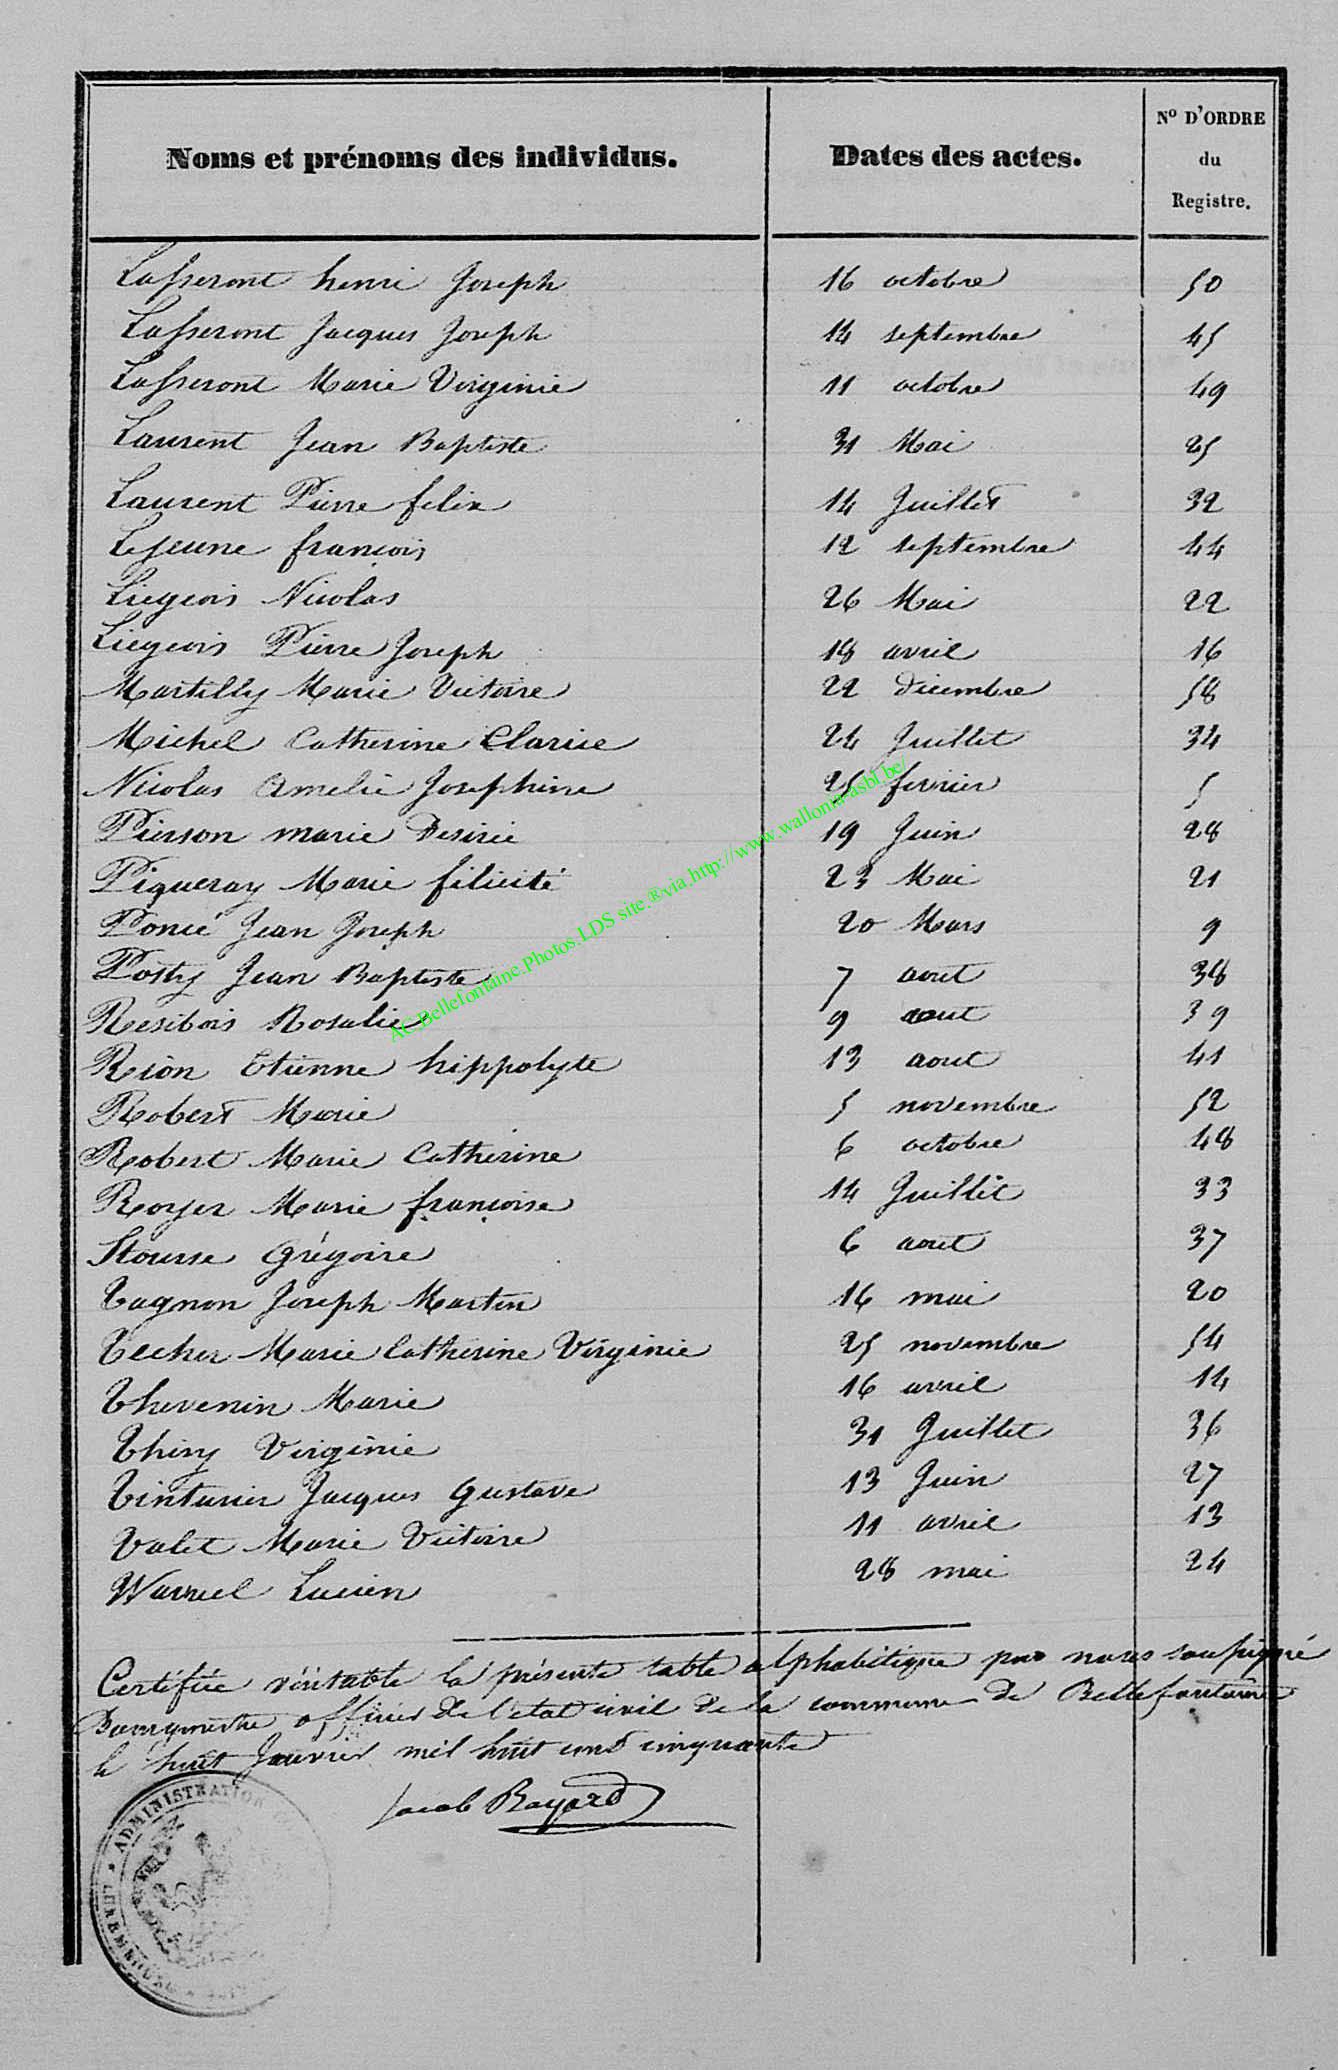 Noms et prénoms des individus. Dates des actes. N° D'ORDRE du Registre.
Lasseront henri Joseph 16 octobre 50
Lasseront Jacques Joseph 14 septembre 45
Lasseront Marie Virginie 11 octobre 49
Laurent Jean Baptiste 31 Mai 25
Laurent Pierre felix 14 Juillet 32
Lejeune françois 12 septembre 44
Liegeois Nicolas 26 Mai 22
Liegeois Pierre Joseph 18 avril 16
Martilly Marie Victoire 22 décembre 58
Michel Catherine Clarice 24 Juillet 34
Nicolas Amelie Josephine 25 fevrier 5
Pierson marie Desirée 19 Juin 28
Piqueray Marie félicité 23 Mai 21
Poncé Jean Joseph 20 Mars 9
Posty Jean Baptiste 7 aout 38
Resibois Rosalie 9 aout 39
Rion Etienne hippolyte 13 aout 41
Robert Marie 5 novembre 52
Robert Marie Catherine 6 octobre 48
Royer Marie françoise 14 Juillet 33
Stourse Grégoire 6 aout 37
Tagnon Joseph Martin 16 mai 20
Techer Marie Catherine Virginie 25 novembre 54
Thevenin Marie 16 avril 14
Thiry Virginie 31 Juillet 36
Tinturier Jacques Gustave 13 Juin 27
Valet Marie Victoire 11 avril 13
Warnel Lucien 28 mai 24
Certifiée véritable la présente table alphabétique par nous soussigné
Bourgmestre officier de l'etat civil de la commune de Bellefontaine
le huit Janvier mil huit cent cinquante
Jacob Bayard
ADMINISTRATION
LUXEMBOURG
AC.Bellefontaine.Photos.LDS site.®via.http://www.wallonia-asbl.be/